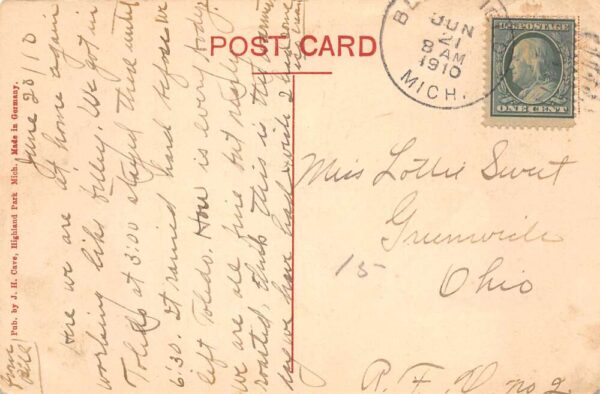 POST CARD
Pub. by J. H. Cave, Highland Park Mich. Made in Germany.
JUN
21
8 AM
1910
MICH.
U.S. POSTAGE
ONE CENT
June 20 10
Here we are at home again
working like We got in
Toledo at 3:00 stayed there until
6:30. It rained hard before we
left Toledo. How is every body
we are all fine but nearly
roasted, think this is the
day we have had with
Miss Lottie Sweet
Greenwich
Ohio
R. F. D no 2
15